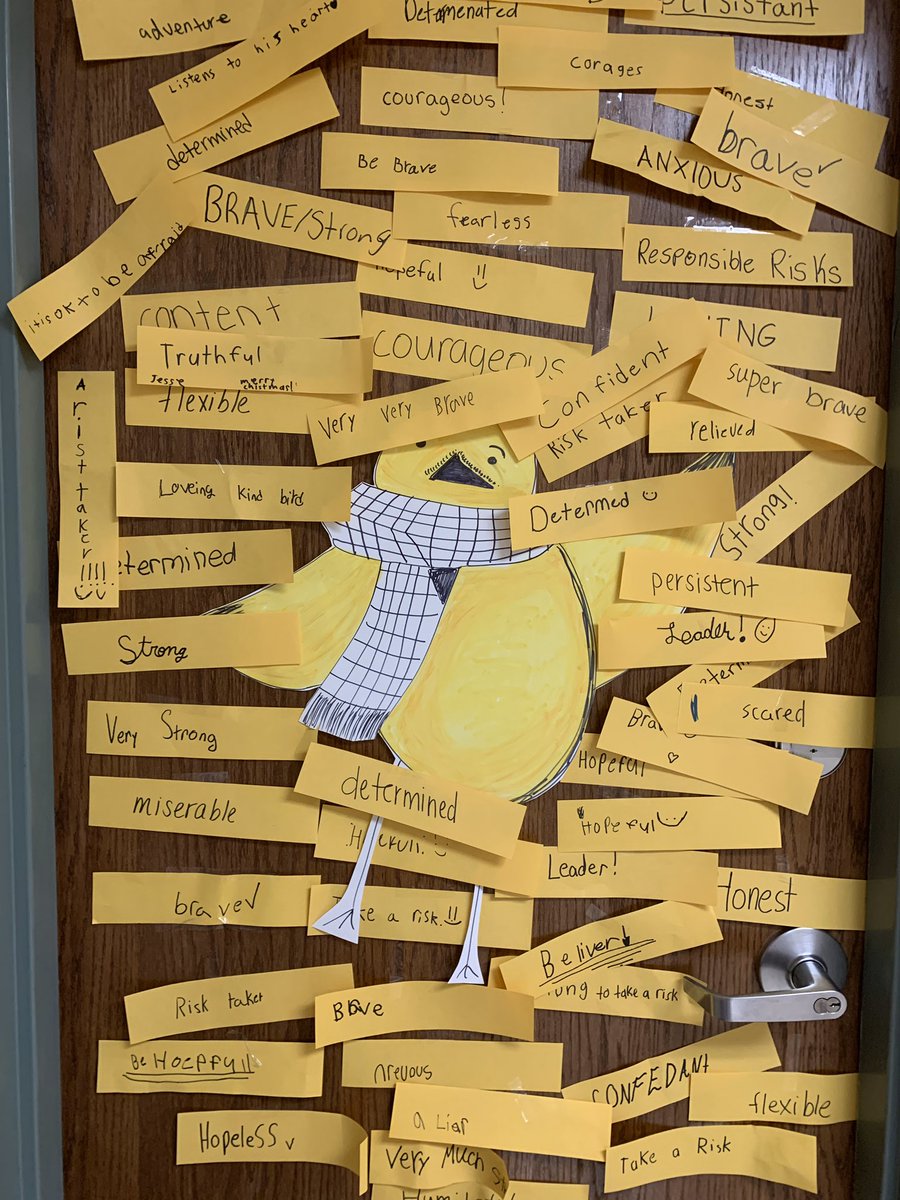 adventure
Listens to his heart
Determenated
persistant
corages
courageous!
honest
brave
determined
Be Brave
ANXIOUS
BRAVE/Strong
fearless
it is ok to be afraid
Responsible Risks
hopeful
content
Truthful
Jesse
merry
christmas!
courageous
Confident
super brave
flexible
Very Very Brave
Risk taker
relieved
A risttaker!!!!
Loveing kind bird
Determed
Strong!
etermined
persistent
Strong
Leader!
Determin
scared
Very Strong
Bra
Hopeful
determined
miserable
Hopeful
Leader!
Honest
brave
Take a risk!!
Beliver!
Risk taker
Brave
to take a risk
Be HoePfull
nrevous
CONFEDANt
flexible
A Liar
Hopeless
Very Much S
Take a Risk